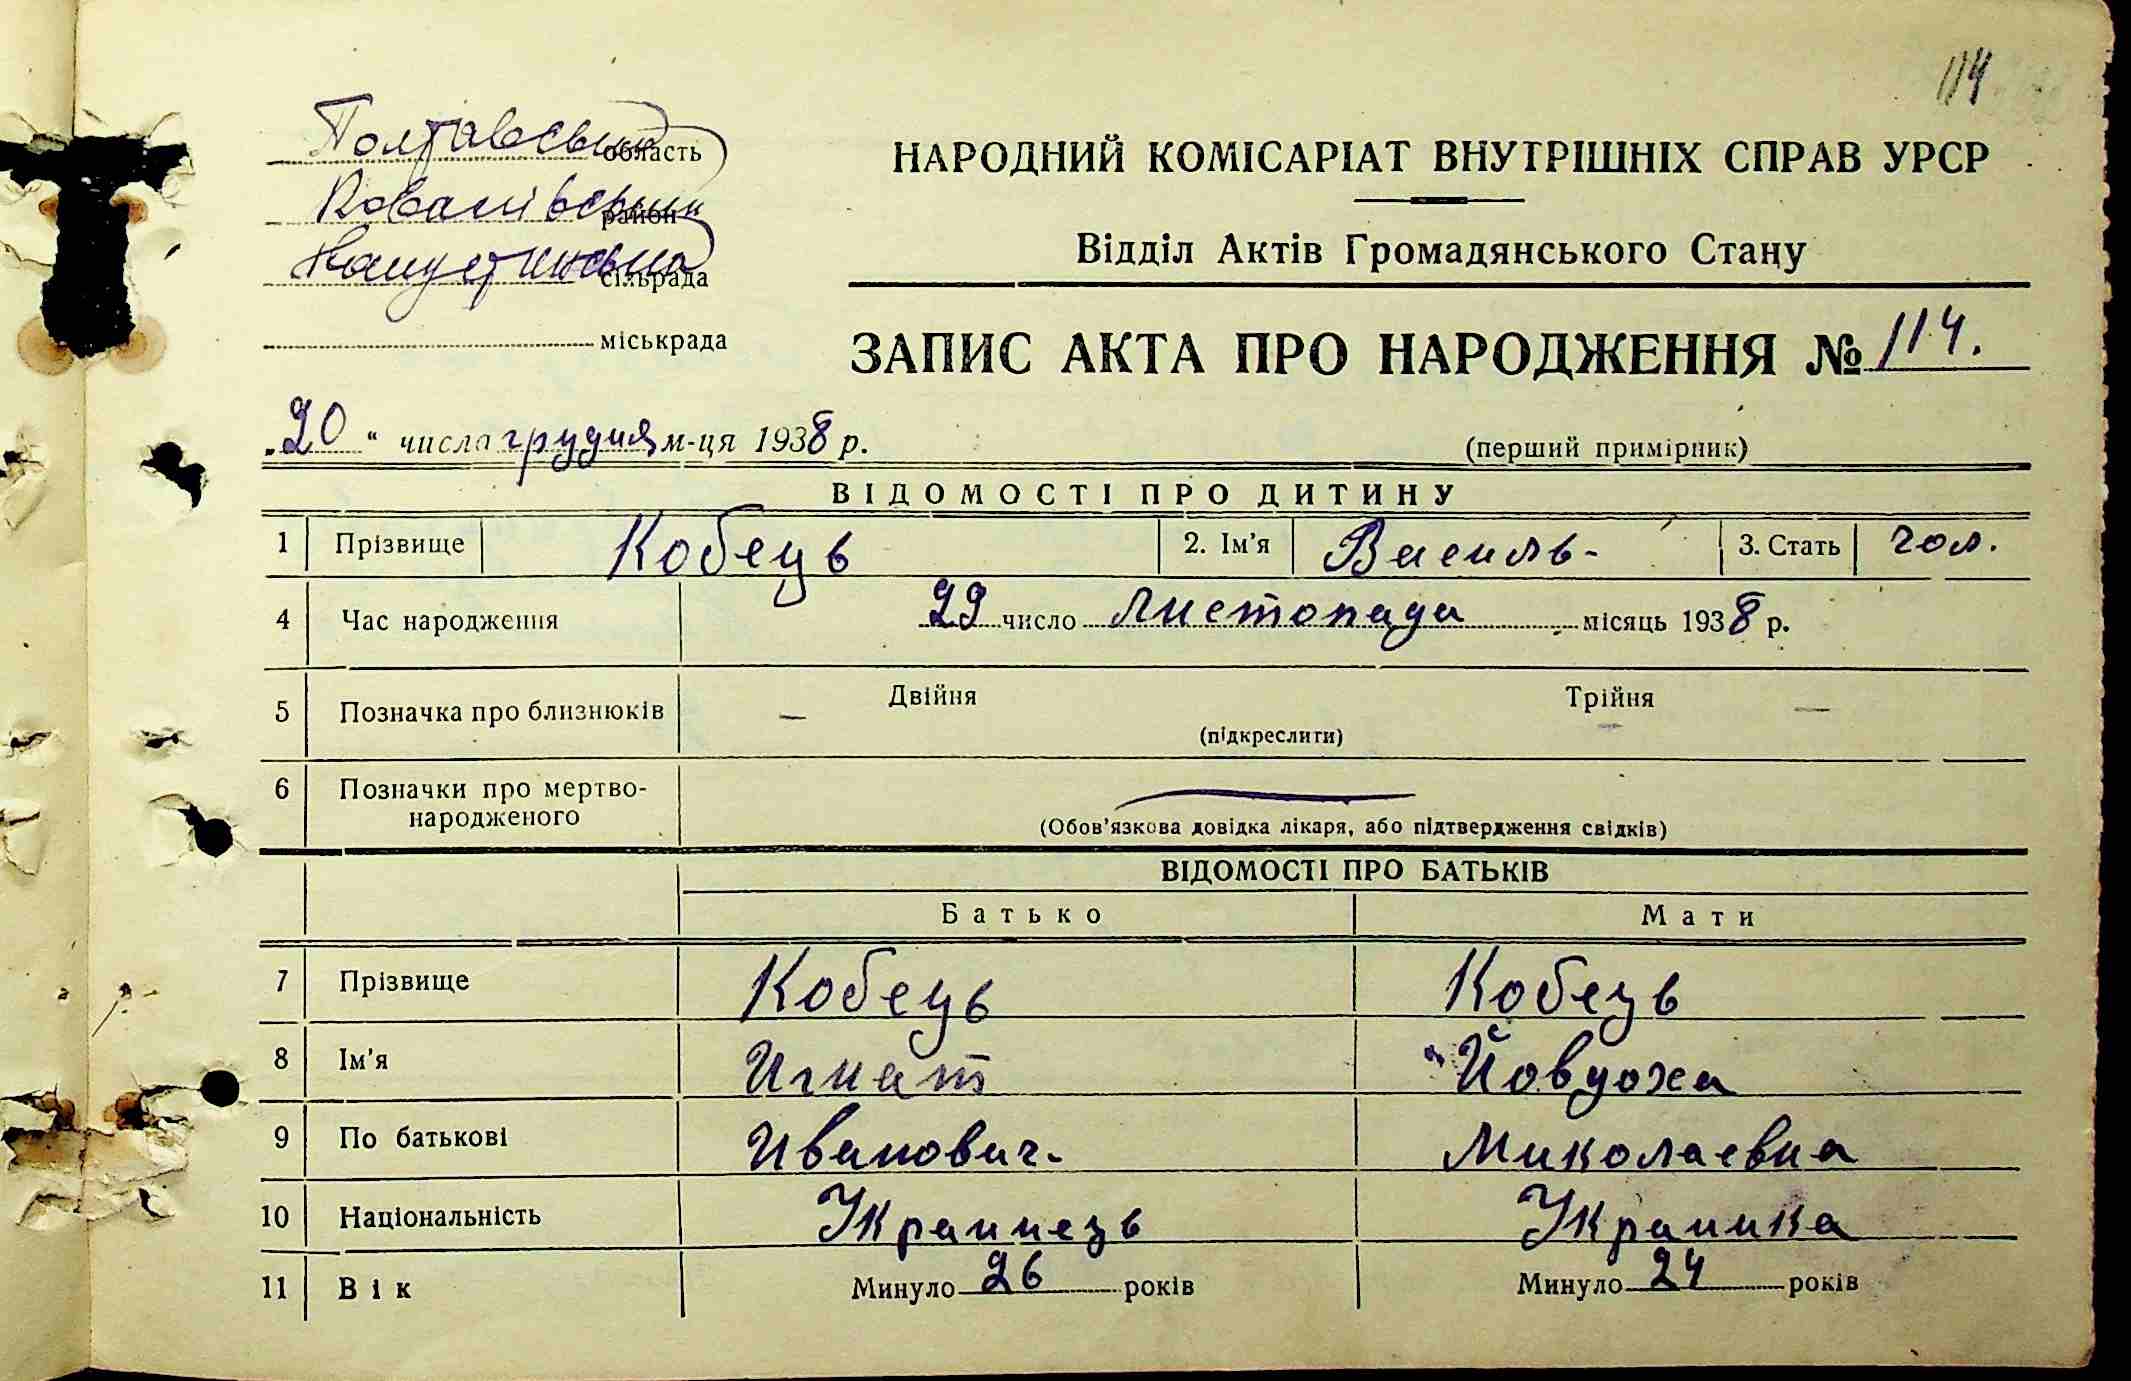 114
Полтавська область
Ковалівський район
Капустинська сільрада
міськрада
НАРОДНИЙ КОМІСАРІАТ ВНУТРІШНІХ СПРАВ УРСР
Відділ Актів Громадянського Стану
ЗАПИС АКТА ПРО НАРОДЖЕННЯ № 114.
„20“ числа грудня м-ця 1938 р.
(перший примірник)
ВІДОМОСТІ ПРО ДИТИНУ
1 Прізвище Кобець 2. Ім'я Василь- 3. Стать чол.
4 Час народження 29 число Листопада місяць 1938 р.
5 Позначка про близнюків — Двійня Трійня —
(підкреслити)
6 Позначки про мертво-
народженого
(Обов'язкова довідка лікаря, або підтвердження свідків)
ВІДОМОСТІ ПРО БАТЬКІВ
Батько Мати
7 Прізвище Кобець Кобець
8 Ім'я Игнат Йовдоха
9 По батькові Иванович. Миколаевна
10 Національність Украинець Украинка
11 Вік Минуло 26 років Минуло 24 років